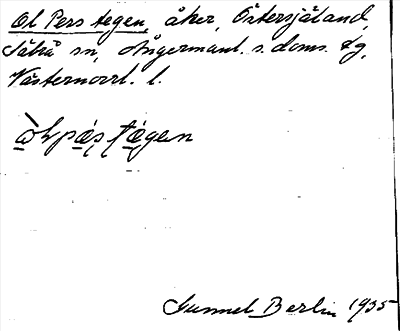 Ol Pers tegen, åker, Östersjåland,
Säbrå sn, Ångermanl. s. doms. dg,
Västernorrl. l.
Gunnel Berlin 1935